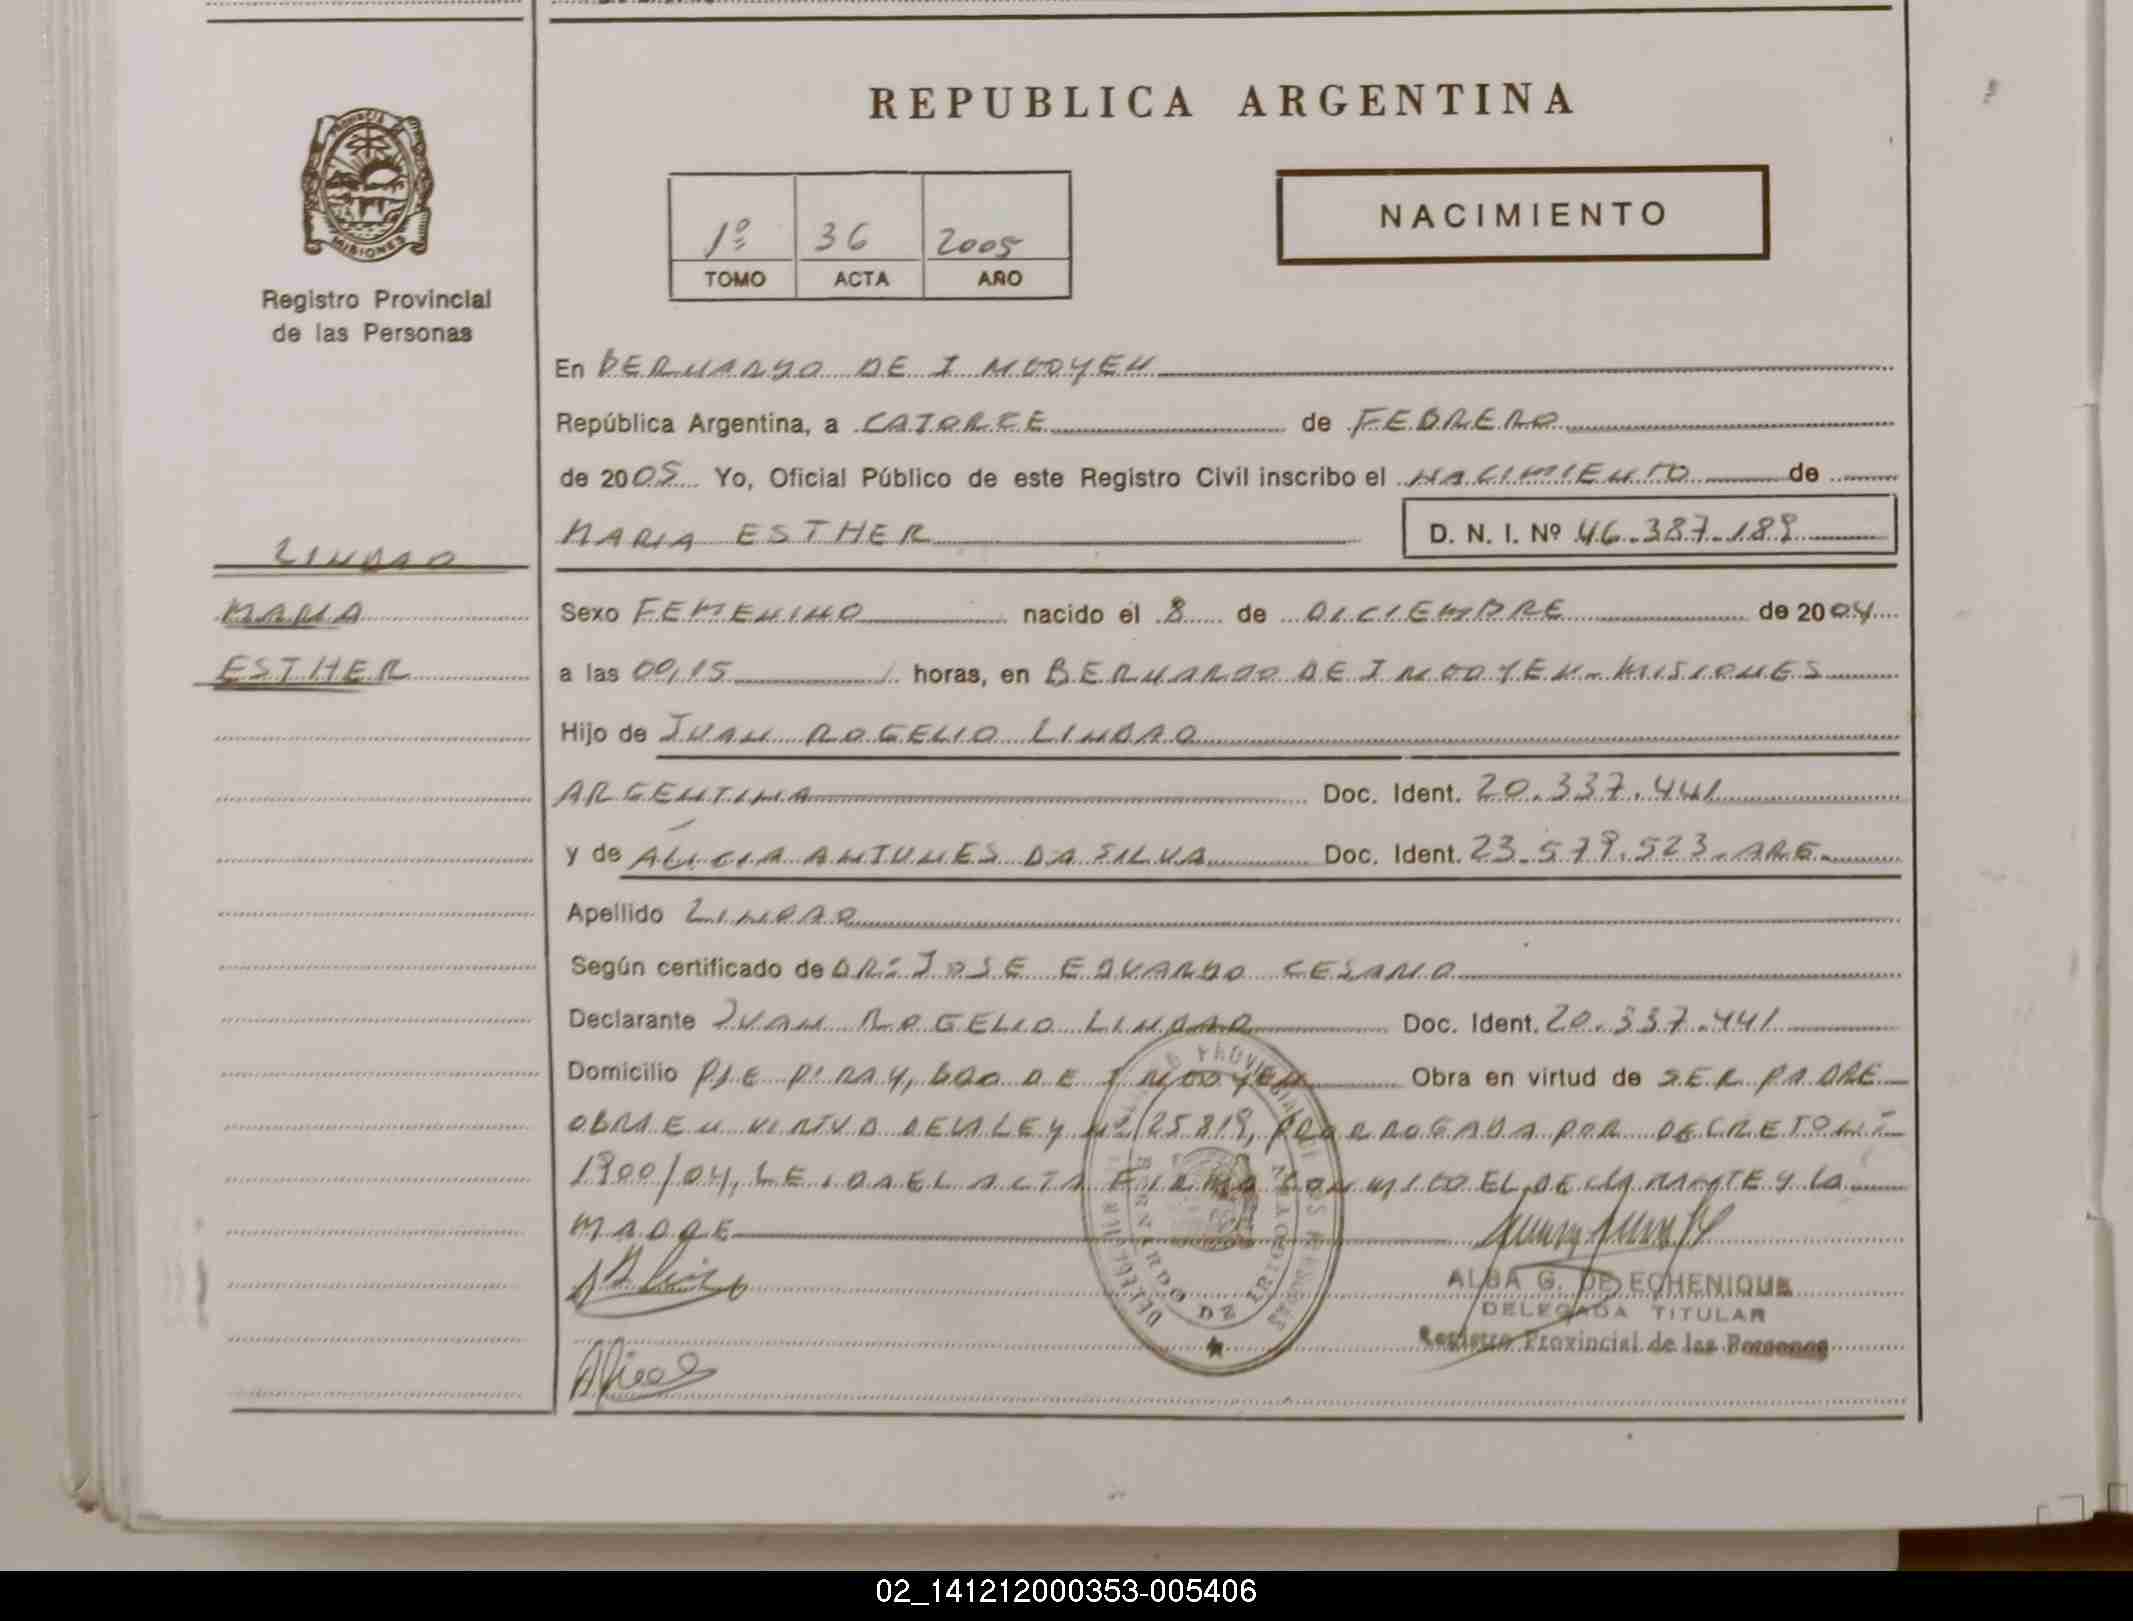 REPUBLICA ARGENTINA
PROVINCIA DE
MISIONES
Registro Provincial
de las Personas
1º 36 2005
TOMO ACTA AÑO
NACIMIENTO
En BERNARDO DE IRIGOYEN
República Argentina, a CATORCE de FEBRERO
de 2005 Yo, Oficial Público de este Registro Civil inscribo el NACIMIENTO de
MARIA ESTHER D. N. I. Nº 46.387.189
LINDAO
MARIA
ESTHER
Sexo FEMENINO nacido el 8 de DICIEMBRE de 2004
a las 00,15 horas, en BERNARDO DE IRIGOYEN - MISIONES
Hijo de JUAN ROGELIO LINDAO
ARGENTINA Doc. Ident. 20.337.441
y de ALICIA ANTUNES DA SILVA Doc. Ident. 23.579.523. ARG.
Apellido LINDAO
Según certificado de DR: JOSE EDUARDO CESARIO
Declarante JUAN ROGELIO LINDAO Doc. Ident. 20.337.441
Domicilio PJE PIRAY, BDO DE IRIGOYEN Obra en virtud de SER PADRE
OBRA EN VIRTUD DE LA LEY Nº 25.819, PRORROGADA POR DECRETO Nº
1900/04, LEIDA EL ACTA FIRMA CONMIGO EL DECLARANTE Y LA
MADRE
ALBA G. DE ECHENIQUE
DELEGADA TITULAR
Registro Provincial de las Personas
BERNARDO DE IRIGOYEN
02_141212000353-005406